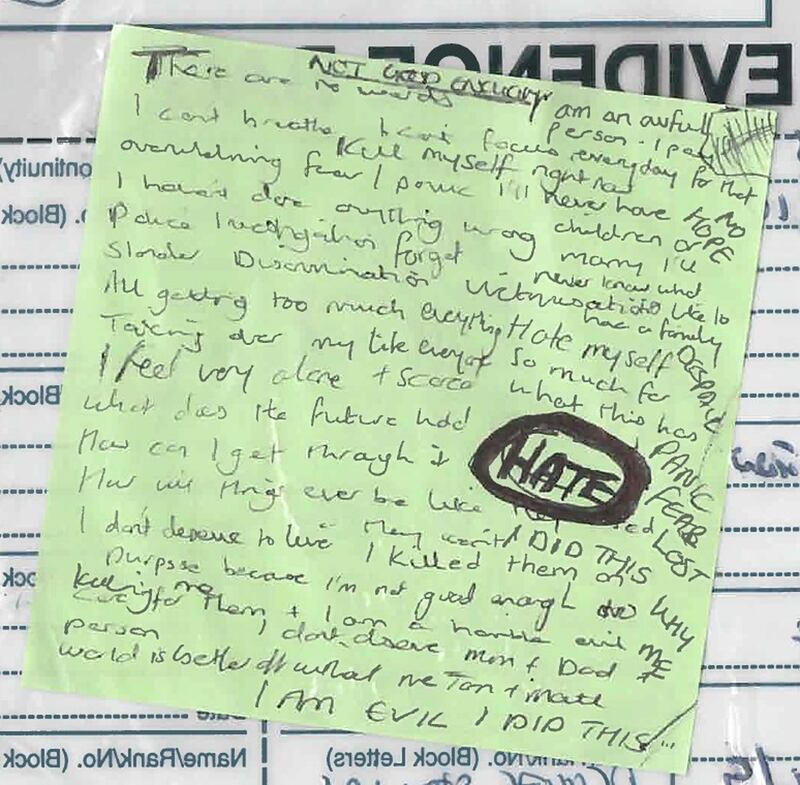 EVIDENCE
NOT GOOD ENOUGH
There are no words
I am an awful person. I pay everyday for that
I cant breathe I cant focus
Kill myself right now
overwhelming fear / panic I'll never have
NO HOPE
children or marry I'll never know what
I haven't done anything wrong
Police Investigation forget
its like to have a family
Slander Discrimination Victimisation
All getting too much everything Hate myself
DESPAIR
Taking over my life everyone so much for what this has
I feel very alone + scared
What does the future hold
How can I get through it
HATE
PANIC
FEAR
LOST
How will things ever be like
I DID THIS
I don't deserve to live I killed them on
WHY ME
purpose because I'm not good enough to
Killing me
care for them + I am a horrible evil
person I don't deserve mum + Dad +
world is better off without me
I AM EVIL I DID THIS...
Continuity)
No. (Block
Date
Name/Rank/No. (Block
Rank/No. (Block Letters)